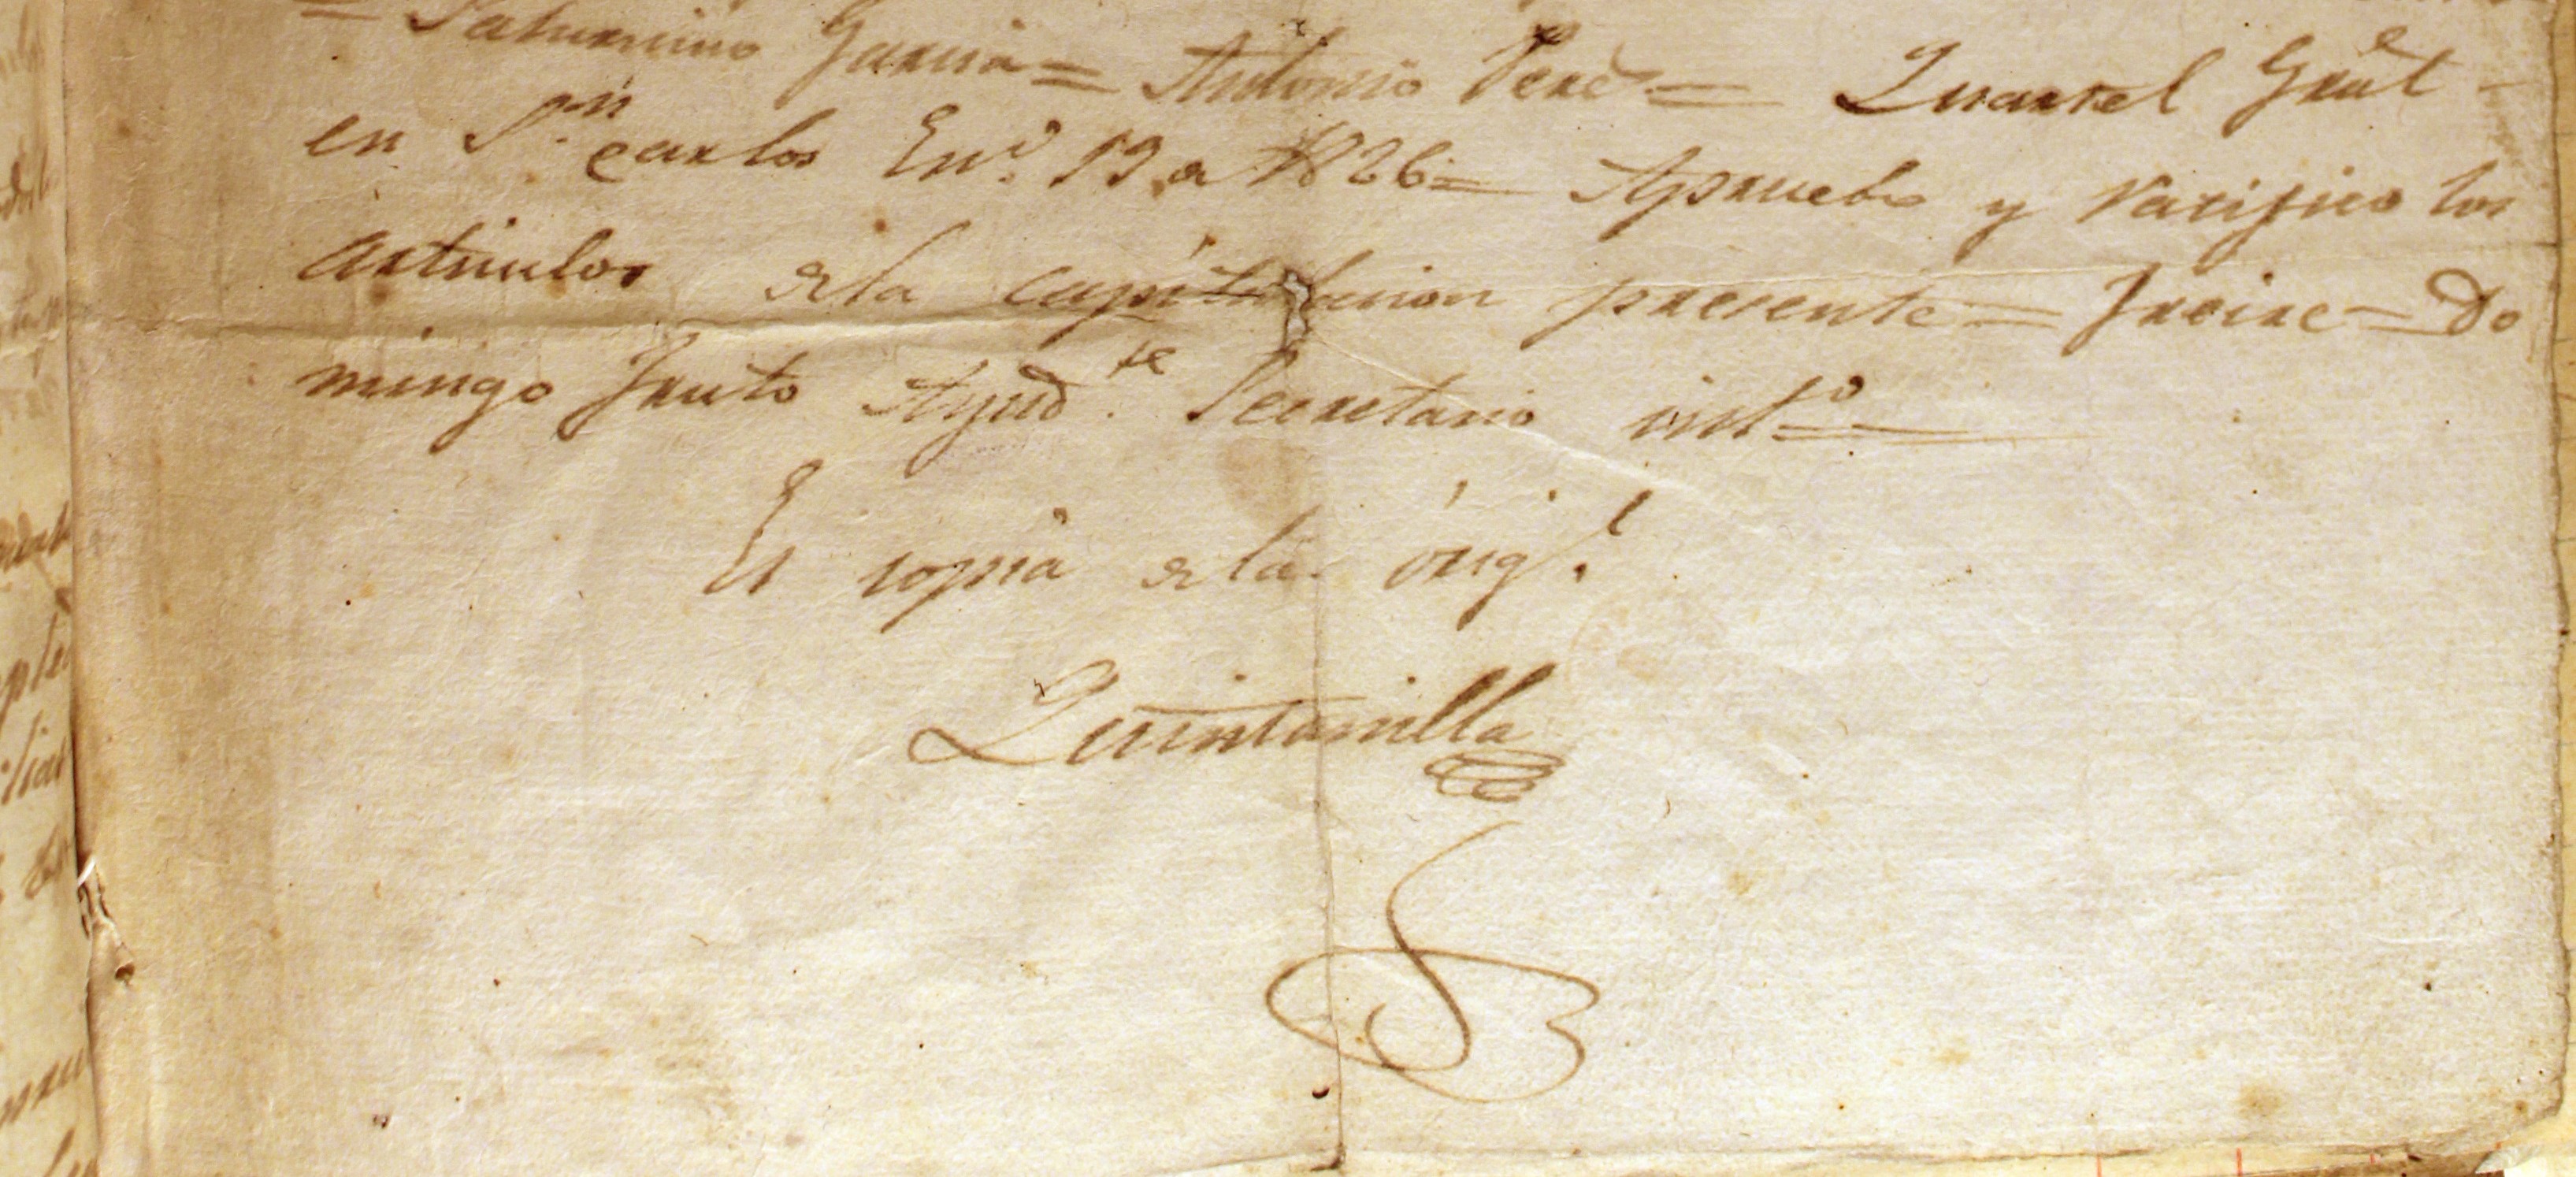 = Saturnino Garcia = Antonio Perez = Quartel Gral
en Sn. Carlos Eno. 19 de 1826 = Apruebo y ratifico los
articulos de la capitulacion presente = Freire = Do
mingo Fruto Ayud.te Secretario int.o =
Es copia de la órig.l
Quintanilla